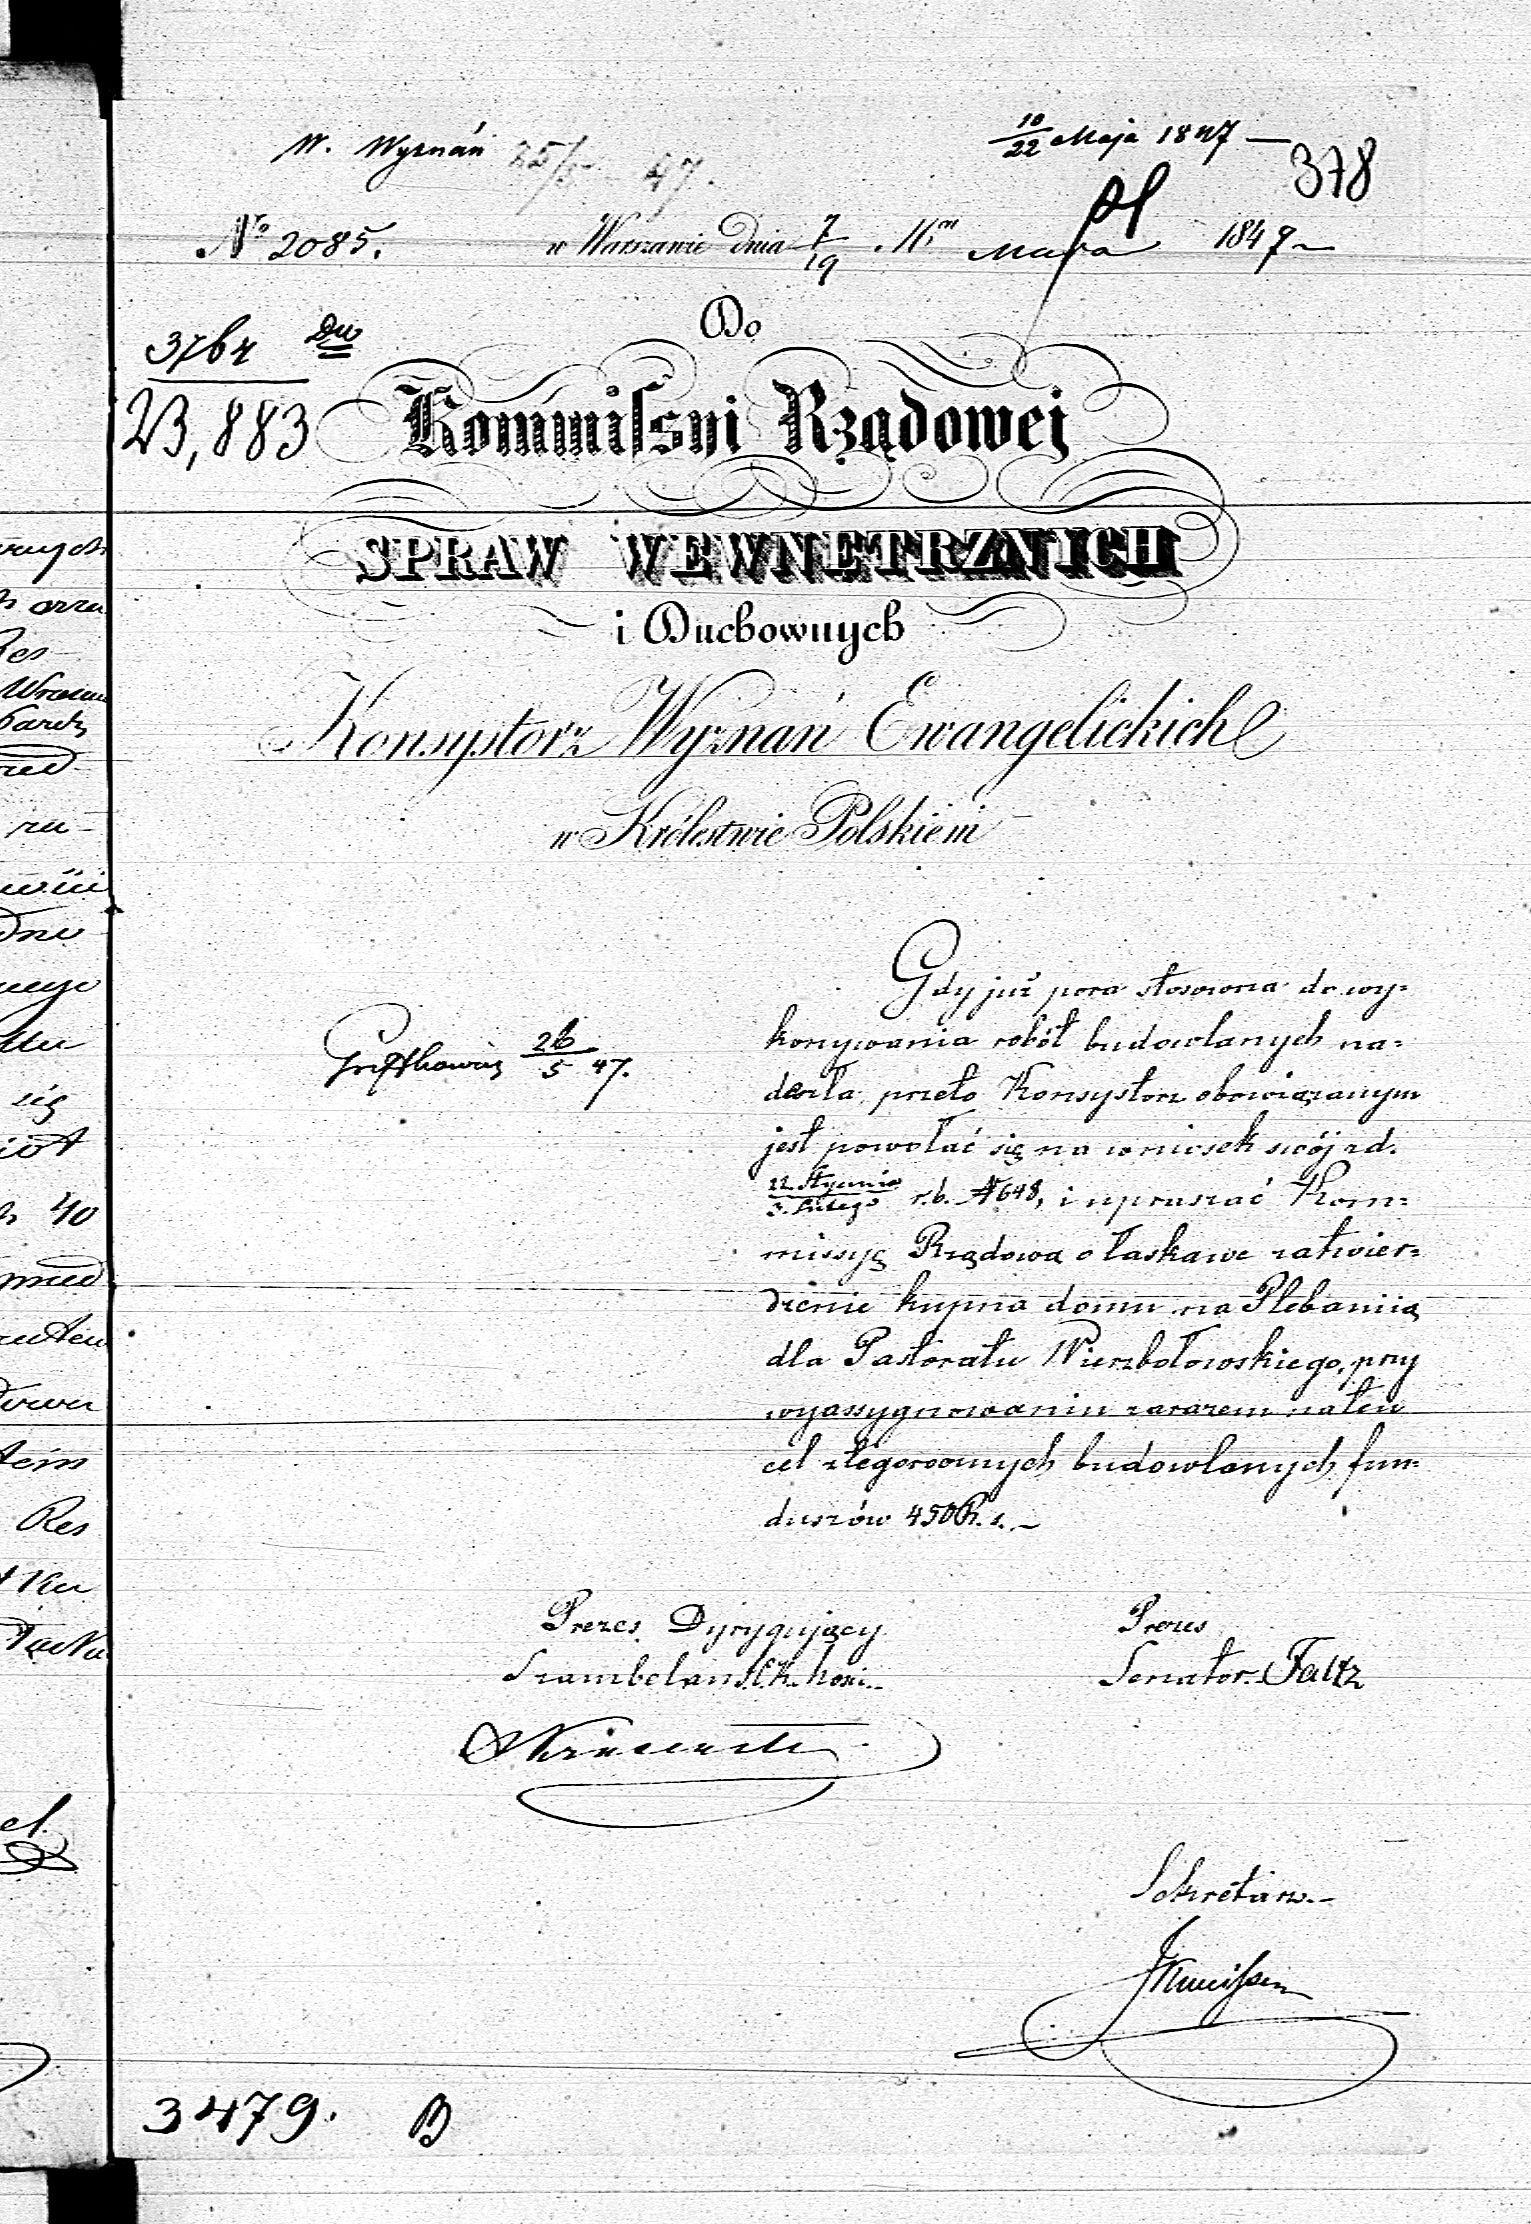 W. Wyznań 25/5 47.
10/22 Maja 1847
378
No 2085.
w Warszawie dnia 7/19 Maja 1847
Do
3764 Dw
23,883
Kommissyi Rządowej
SPRAW WEWNĘTRZNYCH
i Duchownych
Konsystorz Wyznań Ewangelickich
w Królestwie Polskiem
Gdy już pora stosowna do wy=
konywania robót budowlanych na=
deszła, przeto Konsystorz obowiązanym
26/5 47.
jest powołać się na wniosek swój z d.
22 Stycznia/3 Lutego r. b. N 648, i upraszać Kom=
missyę Rządową o łaskawe zatwier=
dzenie kupna domu na Plebaniią
dla Pastoratu Wierzbołowskiego, przy
wyassygnowaniu zarazem na ten
cel z tegorocznych budowlanych fun=
duszów 450 R. s.
Prezes Dyrygujący
Prezes
Szambelan
Senator
Sekretarz
3479. B
ię
40
Res